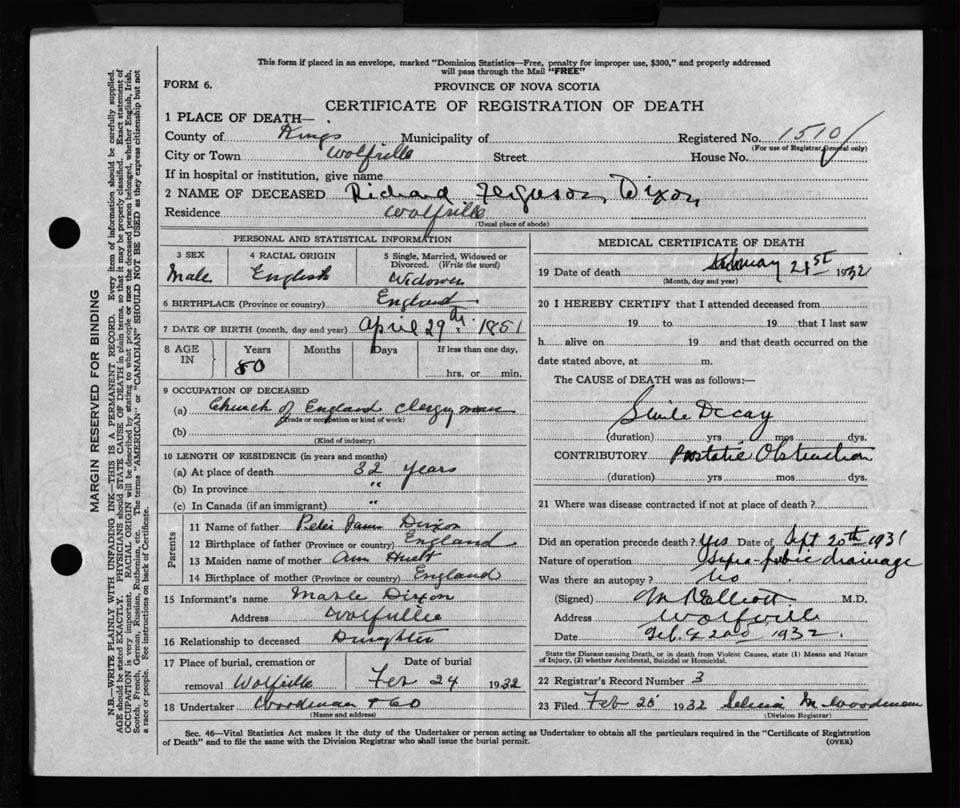 This form if placed in an envelope, marked "Dominion Statistics—Free, penalty for improper use, $300," and properly addressed
will pass through the Mail "FREE"
FORM 6.
PROVINCE OF NOVA SCOTIA
CERTIFICATE OF REGISTRATION OF DEATH
1 PLACE OF DEATH—
County of Kings Municipality of Registered No. 1510
(For use of Registrar General only)
City or Town Wolfville Street House No.
If in hospital or institution, give name
2 NAME OF DECEASED Richard Ferguson Dixon
Residence Wolfville
(Usual place of abode)
PERSONAL AND STATISTICAL INFORMATION
3 SEX 4 RACIAL ORIGIN 5 Single, Married, Widowed or
Divorced. (Write the word)
Male English Widower
6 BIRTHPLACE (Province or country) England
7 DATE OF BIRTH (month, day and year) April 29th 1851
8 AGE IN Years Months Days If less than one day,
80 hrs. or min.
9 OCCUPATION OF DECEASED
(a) Church of England Clergyman
(Trade or occupation or kind of work)
(b)
(Kind of industry)
10 LENGTH OF RESIDENCE (in years and months)
(a) At place of death 32 years
(b) In province "
(c) In Canada (if an immigrant) "
Parents
11 Name of father Peter Dixon
12 Birthplace of father (Province or country) England
13 Maiden name of mother Ann
14 Birthplace of mother (Province or country) England
15 Informant's name Dixon
Address Wolfville
16 Relationship to deceased Daughter
17 Place of burial, cremation or Date of burial
removal Wolfville Feb 24 1932
18 Undertaker Woodman & Co
(Name and address)
MEDICAL CERTIFICATE OF DEATH
19 Date of death February 21st 1932
(Month, day and year)
20 I HEREBY CERTIFY that I attended deceased from
19 to 19 that I last saw
h alive on 19 and that death occurred on the
date stated above, at m.
The CAUSE of DEATH was as follows:—
Senile Decay
(duration) yrs mos dys.
CONTRIBUTORY Prostatic Obstruction
(duration) yrs mos dys.
21 Where was disease contracted if not at place of death?
Did an operation precede death? Yes Date of Sept 20th 1931
Nature of operation Supra-pubic drainage
Was there an autopsy? No
(Signed) M R Elliott M.D.
Address Wolfville
Date Feb. 22nd 1932.
State the Disease causing Death, or in death from Violent Causes, state (1) Means and Nature
of Injury, (2) whether Accidental, Suicidal or Homicidal.
22 Registrar's Record Number 3
23 Filed Feb 25 1932 M Woodman
(Division Registrar)
Sec. 46—Vital Statistics Act makes it the duty of the Undertaker or person acting as Undertaker to obtain all the particulars required in the "Certificate of Registration
of Death" and to file the same with the Division Registrar who shall issue the burial permit. (OVER)
MARGIN RESERVED FOR BINDING
N.B.—WRITE PLAINLY WITH UNFADING INK—THIS IS A PERMANENT RECORD. Every item of information should be carefully supplied.
AGE should be stated EXACTLY. PHYSICIANS should STATE CAUSE OF DEATH in plain terms, so that it may be properly classified. Exact statement of
OCCUPATION is very important. RACIAL ORIGIN will be described by stating to what people or race the deceased person belonged, whether English, Irish,
Scotch, French, German, Russian, Ruthenian, etc. The terms "AMERICAN" or "CANADIAN" SHOULD NOT BE USED as they express citizenship but not
a race or people. See instructions on back of Certificate.